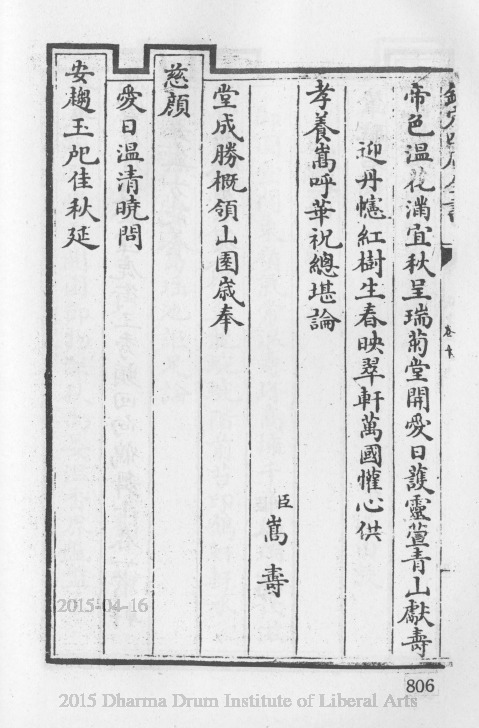 欽定四庫全書
帝色溫花滿宜秋呈瑞菊堂開愛日護靈萱青山獻壽
迎丹幰紅樹生春映翠軒萬國懽心供
孝養嵩呼華祝總堪論
臣嵩壽
堂成勝概領山園歲奉
慈顔
愛日溫清曉問
安趨玉戺佳秋延
2015-04-16
806
2015 Dharma Drum Institute of Liberal Arts